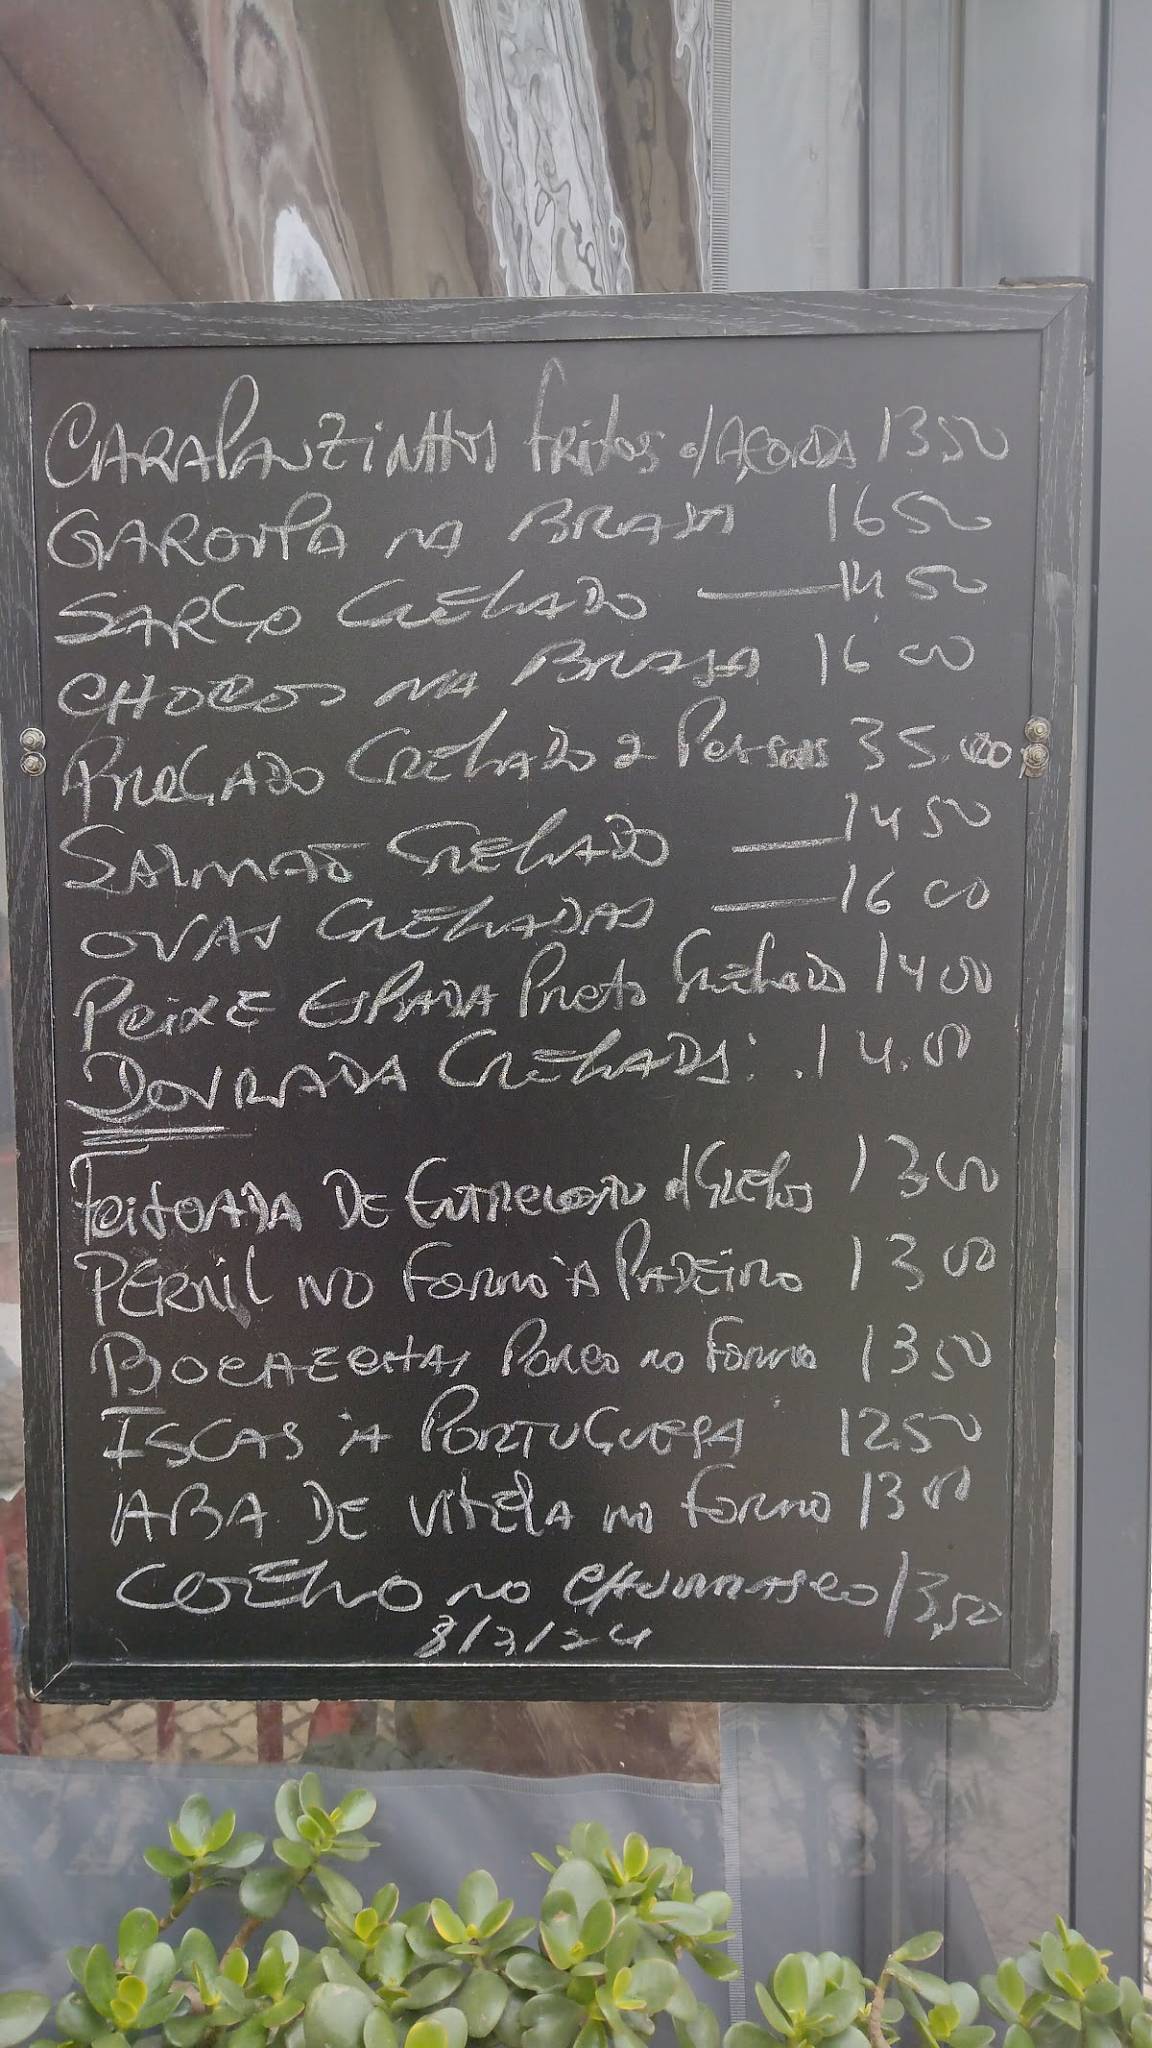 CARAPAUZINHOS fritos c/AÇORDA 1350
GAROUPA NA BRASA 1650
SARGO GRELHADO — 14.50
CHOCOS NA BRASA 16 00
PREGADO GRELHADO 2 Pessoas 35.00
SALMÃO GRELHADO — 1450
OVAS GRELHADAS — 16 00
PEIXE ESPADA Preto Grelhado 1400
DOURADA GRELHADA: .14.00
FEIJOADA DE ENTRECOSTO c/GRELOS 1300
PERNIL NO FORNO À PADEIRO 1300
BOCHECHAS PORCO NO FORNO 1350
ISCAS À PORTUGUESA 12.50
ABA DE VITELA NO FORNO 1300
COELHO NO CHURRASCO 13,50
8/3/24